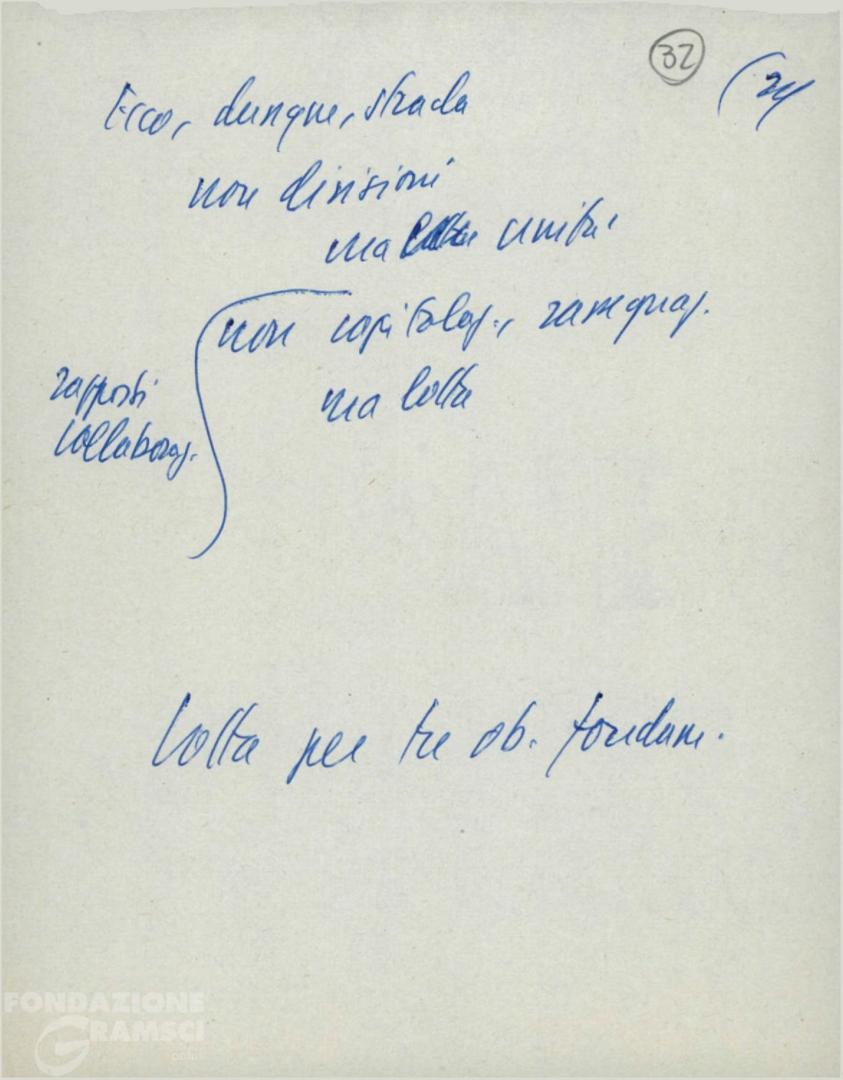 32
Ecco, dunque, strada
non divisioni
ma unità
non capitolaz., rassegnaz.
ma lotta
rapporti
collaboraz.
Lotta per tre ob. fondam.
FONDAZIONE
GRAMSCI